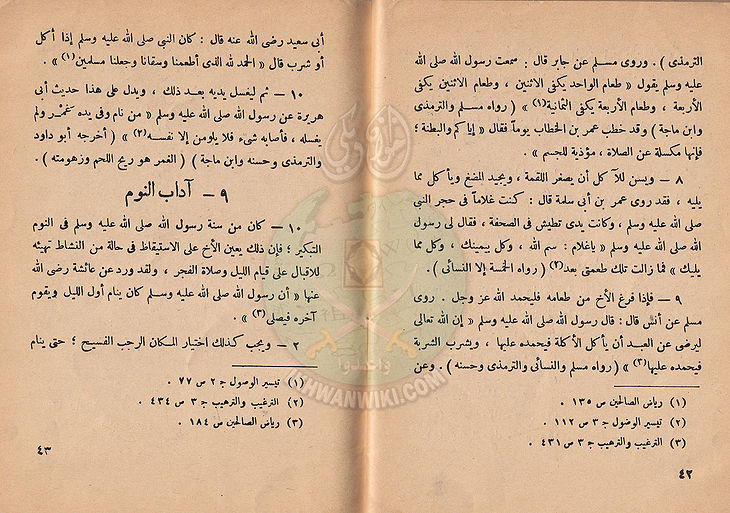 الترمذى ) . وروى مسلم عن جابر قال : سمعت رسول الله صلى الله
عليه وسلم يقول « طعام الواحد يكفى الاثنين ، وطعام الاثنين يكفى
الأربعة ، وطعام الأربعة يكفى الثمانية(١) » ( رواه مسلم والترمذى
وابن ماجة ) وقد خطب عمر بن الخطاب يوماً فقال « إياكم والبطنة ؛
فإنها مكسلة عن الصلاة ، مؤذية للجسم » .
٨ – ويسن للآكل أن يصغر اللقمة ، ويجيد المضغ ويأكل مما
يليه ، فقد روى عمر بن أبى سلمة قال : كنت غلاماً فى حجر النبى
صلى الله عليه وسلم ، وكانت يدى تطيش فى الصحفة ، فقال لى رسول
الله صلى الله عليه وسلم « ياغلام : سم الله ، وكل بيمينك ، وكل مما
يليك » فما زالت تلك طعمتى بعد(٢) ( رواه الخمسة إلا النسائى ) .
٩ – فإذا فرغ الأخ من طعامه فليحمد الله عز وجل . روى
مسلم عن أنس قال : قال رسول الله صلى الله عليه وسلم « إن الله تعالى
ليرضى عن العبد أن يأكل الأكلة فيحمده عليها ، ويشرب الشربة
فيحمده عليها(٣) » ( رواه مسلم والنسائى والترمذى وحسنه ) . وعن
(١) رياض الصالحين ص ١٣٥ .
(٢) تيسير الوضول ج ٣ ص ١١٢ .
(٣) الترغيب والترهيب ج ٣ ص ٤٣١ .
٤٢
أبى سعيد رضى الله عنه قال : كان النبى صلى الله عليه وسلم إذا أكل
أو شرب قال « الحمد لله الذى أطعمنا وسقانا وجعلنا مسلمين(١) » .
١٠ – ثم ليغسل يديه بعد ذلك ، ويدل على هذا حديث أبى
هريرة عن رسول الله صلى الله عليه وسلم « من نام وفى يده غمر ولم
يغسله ، فأصابه شىء فلا يلومن إلا نفسه(٢) » ( أخرجه أبو داود
والترمذى وحسنه وابن ماجة ) ( الغمر هو ريح اللحم وزهومته ) .
٩ – آداب النوم
١٠ – كان من سنة رسول الله صلى الله عليه وسلم فى النوم
التبكير ؛ فإن ذلك يعين الأخ على الاستيقاظ فى حالة من النشاط تهيئه
للاقبال على قيام الليل وصلاة الفجر ، ولقد ورد عن عائشة رضى الله
عنها « أن رسول الله صلى الله عليه وسلم كان ينام أول الليل ويقوم
آخره فيصلى(٣) » .
٢ – ويجب كذلك اختيار المكان الرحب الفسيح ؛ حتى ينام
(١) تيسير الوصول ج ٢ ص ٧٧ .
(٢) الترغيب والترهيب ج ٣ ص ٤٣٤ .
(٣) رياض الصالحين ص ١٨٤ .
٤٣
وأعدوا
IKHWANWIKI.COM